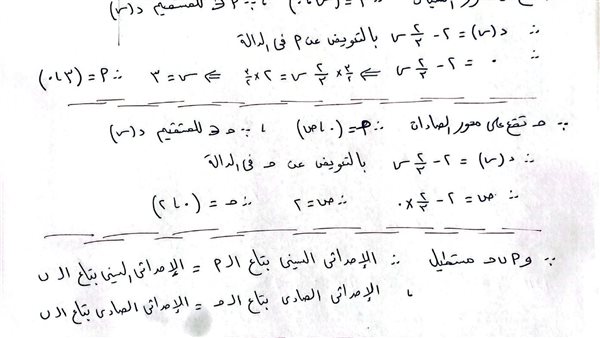 ∵ د(س) = ٢ - ٢/٣ س بالتعويض عن P فى الدالة
∴ ٠ = ٢ - ٢/٣ س ⇐ ٣/٢ × ٢/٣ س = ٢ × ٣/٢ ⇐ س = ٣ ∴ P = (٣، ٠)
∵ حـ تقع على محور الصادات ∴ حـ = (٠، ص) ، ∵ حـ ∈ للمستقيم د(س)
∵ د(س) = ٢ - ٢/٣ س بالتعويض عن حـ فى الدالة
∴ ص = ٢ - ٢/٣ × ٠ ∴ ص = ٢ ∴ حـ = (٠، ٢)
∵ و P ب حـ مستطيل ∴ الإحداثى السينى بتاع الـ P = الإحداثى السينى بتاع الـ ب
، الإحداثى الصادى بتاع الـ حـ = الإحداثى الصادى بتاع الـ ب